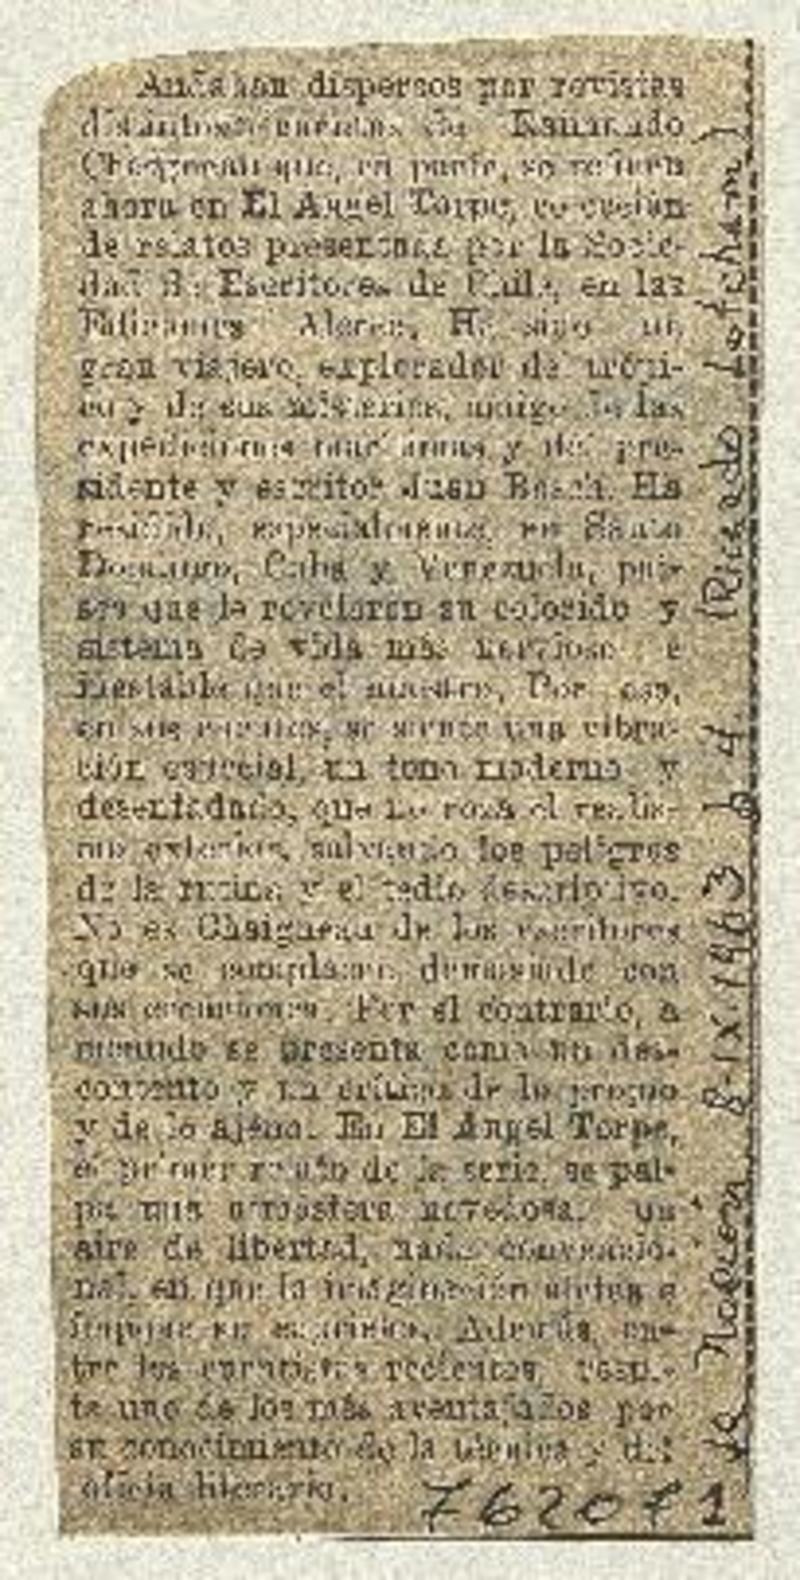 Andaban dispersos por revistas
distintos cuentos de Raimundo
Chaigneau que, en parte, se reúnen
ahora en El Angel Torpe, colección
de relatos presentada por la Socie-
dad de Escritores de Chile, en las
Ediciones Alerce. Ha sido un
gran viajero, explorador del trópi-
co y de sus misterios, amigo de las
expediciones y del pre-
sidente y escritor Juan Bosch. Ha
residido, especialmente, en Santo
Domingo, Cuba y Venezuela, paí-
ses que le revelaron su colorido y
sistema de vida más nervioso e
inestable que el nuestro. Por eso,
en sus cuentos, se siente una vibra-
ción especial, un tono moderno y
desenfadado, que no roza el realis-
mo exterior, salvando los peligros
de la rutina y el tedio descriptivo.
No es Chaigneau de los escritores
que se complacen demasiado con
sus creaciones. Por el contrario, a
menudo se presenta como un des-
contento y un crítico de lo propio
y de lo ajeno. En El Angel Torpe,
el primer relato de la serie, se pal-
pa una atmósfera novedosa, un
aire de libertad, nada convencio-
nal, en que la imaginación
Además, en-
tre los cuentistas recientes, resul-
ta uno de los más aventajados por
su conocimiento de la técnica y del
oficio literario.
762071
La Nación 8-IX-1963 p. 4 (Ricardo Latcham)